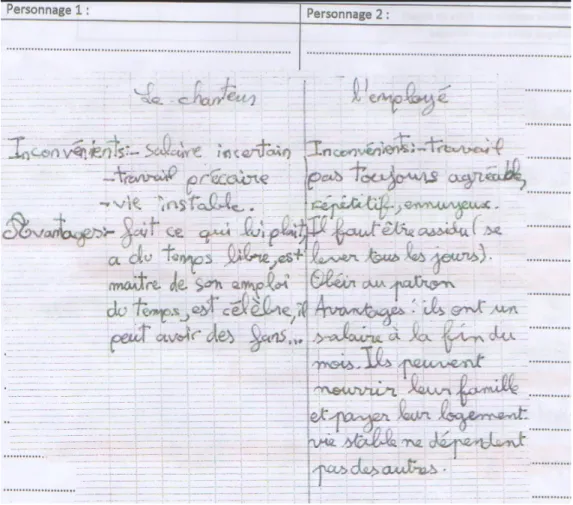 Personnage 1 :
Le chanteur
Inconvénients:- Salaire incertain
-travail précaire
-vie instable.
Avantages:- fait ce qui lui plait,
a du temps libre, est
maitre de son emploi
du temps, est célèbre, il
peut avoir des fans...
Personnage 2 :
l'employé
Inconvénients:-travail
pas toujours agréable,
répétitif, ennuyeux.
Il faut être assidu (se
lever tous les jours).
Obéir au patron
Avantages : ils ont un
salaire à la fin du
mois. Ils peuvent
nourrir leur famille
et payer leur logement.
vie stable ne dépendent
pas des autres.